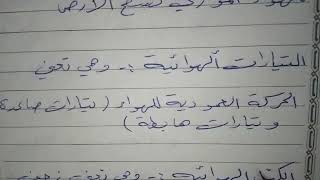 لسطح الأرض
التيارات الهوائية :- وهي تعني
الحركة العمودية للهواء ( تيارات صاعدة
وتيارات هابطة )
الهوائية :- وهي